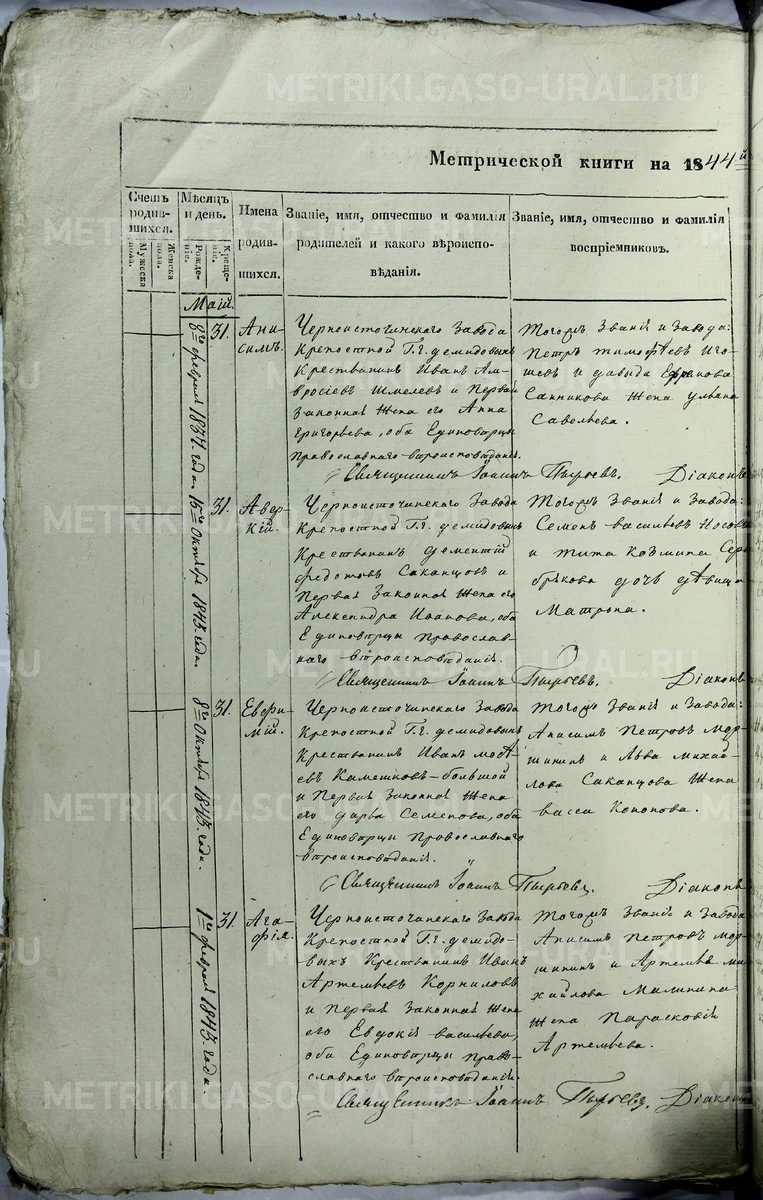 METRIKI.GASO-URAL.RU
Метрической книги на 1844й
Счетъ родив-
шихся.
Мужеска пола.
Женска пола.
Мѣсяцъ и день.
Рожде-
ніе.
Креще-
ніе.
Имена родив-
шихся.
Званіе, имя, отчество и фамилія
родителей и какого вѣроиспо-
вѣданія.
Званіе, имя, отчество и фамилія
воспріемниковъ.
Маій.
8го февраля 1837. года.
31.
Ани-
симъ.
Черноисточинскаго Завода
Крепостной Г.г. демидовыхъ
Крестьянинъ Иванъ Ам-
вросіевъ Шмелевъ и Первая
Законная Жена его Анна
Григорьева, оба Единоверцы
Православнаго вѣроисповѣданія.
Тогожъ Званія и Завода:
Петръ тимофѣевъ
и давыда
Санникова Жена ульяна
Савельева.
Священникъ Іоаннъ Пырьевъ. Діаконъ
15го Октября 1843. года.
31.
Авер-
кій.
Черноисточинскаго Завода
Крепостной Г.г. демидовыхъ
Крестьянинъ дементій
федотовъ Саканцовъ и
Первая Законная Жена его
Александра Иванова, оба
Единоверцы Православ-
наго вѣроисповѣданія.
Тогожъ Званія и Завода:
Семенъ васильевъ Носовъ
и тита Козмина Сере
брякова дочь дѣвица
Матрона.
Священникъ Іоаннъ Пырьевъ. Діаконъ
8го Октября 1843. года.
31.
Евфи-
мій.
Черноисточинскаго Завода
Крепостной Г.г. демидовыхъ
Крестьянинъ Иванъ мосѣ-
евъ Камешковъ-большой
и Первая Законная Жена
его дарья Семенова, оба
Единоверцы Православнаго
вѣроисповѣданія.
Тогожъ Званія и Завода:
Анисимъ Петровъ мор-
шининъ и Льва михай-
лова Саканцова Жена
васса Кононова.
Священникъ Іоаннъ Пырьевъ. Діаконъ
1го февраля 1843. года.
31.
Ага-
фія.
Черноисточинскаго Завода
Крепостной Г.г. демидо-
выхъ Крестьянинъ Иванъ
Артемьевъ Корниловъ
и Первая Законная Жена
его Евдокія васильева,
оба Единоверцы Право-
славнаго вѣроисповѣданія.
Тогожъ Званія и Завода
Анисимъ Петровъ мор-
шининъ и Артемья ми-
хайлова Малинина
Жена Парасковія
Артемьева.
Священникъ Іоаннъ Пырьевъ. Діаконъ